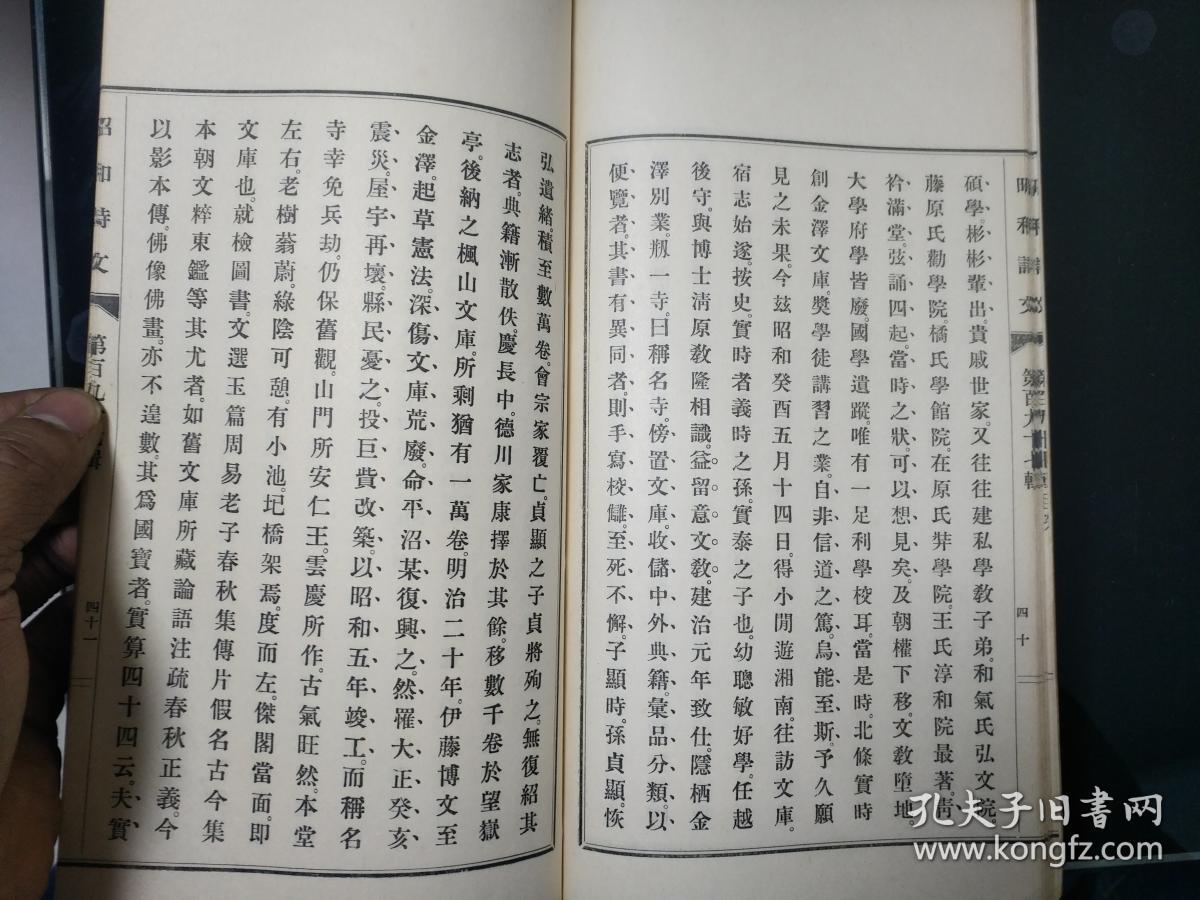 碩學彬彬輩出。貴戚世家。又往往建私學教子弟。和氣氏弘文院
藤原氏勸學院。橘氏學館院。在原氏弉學院。王氏淳和院最著。靑
衿滿堂。弦誦四起。當時之狀。可以想見矣。及朝權下移。文敎墮地。
大學府學皆廢。國學遺蹤。唯有一足利學校耳。當是時。北條實時
創金澤文庫。奬學徒講習之業。自非信道之篤。烏能至斯。予久願
見之未果。今玆昭和癸酉五月十四日。得小閒遊湘南。往訪文庫。
宿志始遂。按史。實時者義時之孫。實泰之子也。幼聰敏好學。任越
後守。與博士淸原敎隆相識。益留意文敎。建治元年致仕。隱栖金
澤別業。刱一寺。曰稱名寺。傍置文庫。收儲中外典籍。彙品分類。以
便覽者。其書有異同者。則手寫校讎。至死不懈。子顯時。孫貞顯。恢
四十
弘遺緒。積至數萬卷。會宗家覆亡。貞顯之子貞將殉之。無復紹其
志者。典籍漸散佚。慶長中。德川家康擇於其餘。移數千卷於望嶽
亭。後納之楓山文庫。所剩猶有一萬卷。明治二十年。伊藤博文至
金澤。起草憲法。深傷文庫荒廢。命平沼某復興之。然罹大正癸亥
震災。屋宇再壞。縣民憂之。投巨費改築。以昭和五年竣工。而稱名
寺幸免兵劫。仍保舊觀。山門所安仁王。雲慶所作。古氣旺然。本堂
左右。老樹蓊蔚。綠陰可憩。有小池。圯橋架焉。度而左。傑閣當面。即
文庫也。就檢圖書。文選玉篇周易老子春秋集傳片假名古今集
本朝文粹東鑑等其尤者。如舊文庫所藏論語注疏春秋正義。今
以影本傳。佛像佛畫。亦不遑數。其爲國寶者。實算四十四云。夫實
昭和詩文
第百九
輯
四十一
孔夫子旧书网
www.kongfz.com